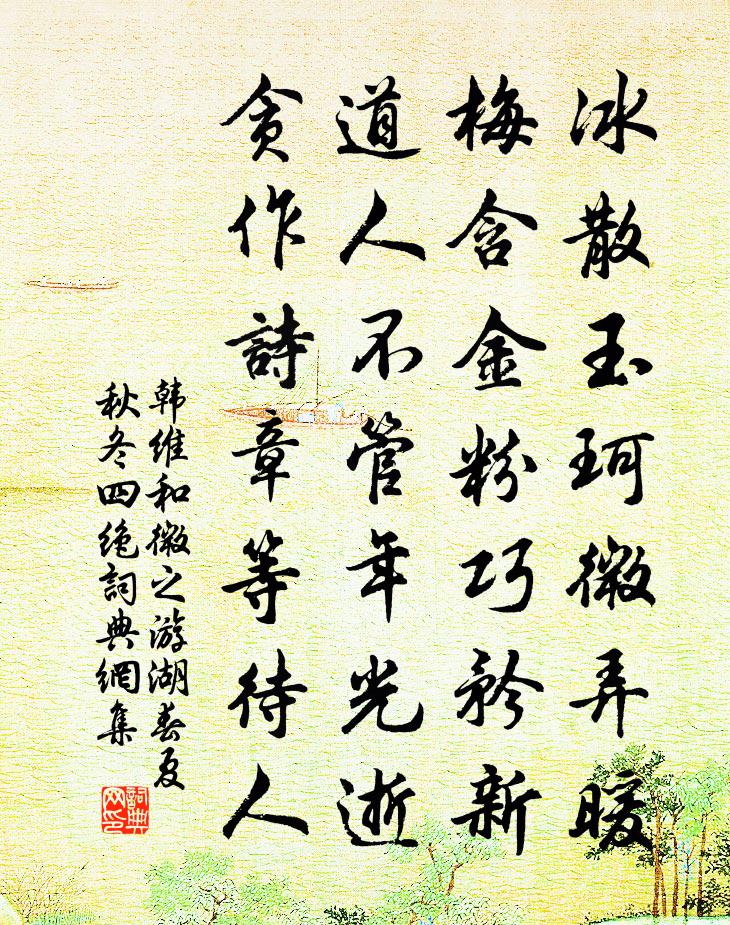 冰散玉珂微弄暖
梅含金粉巧矜新
道人不管年光逝
贪作詩章等待人
韩维和微之游湖春夏
秋冬四绝詞典網集
詞典网印